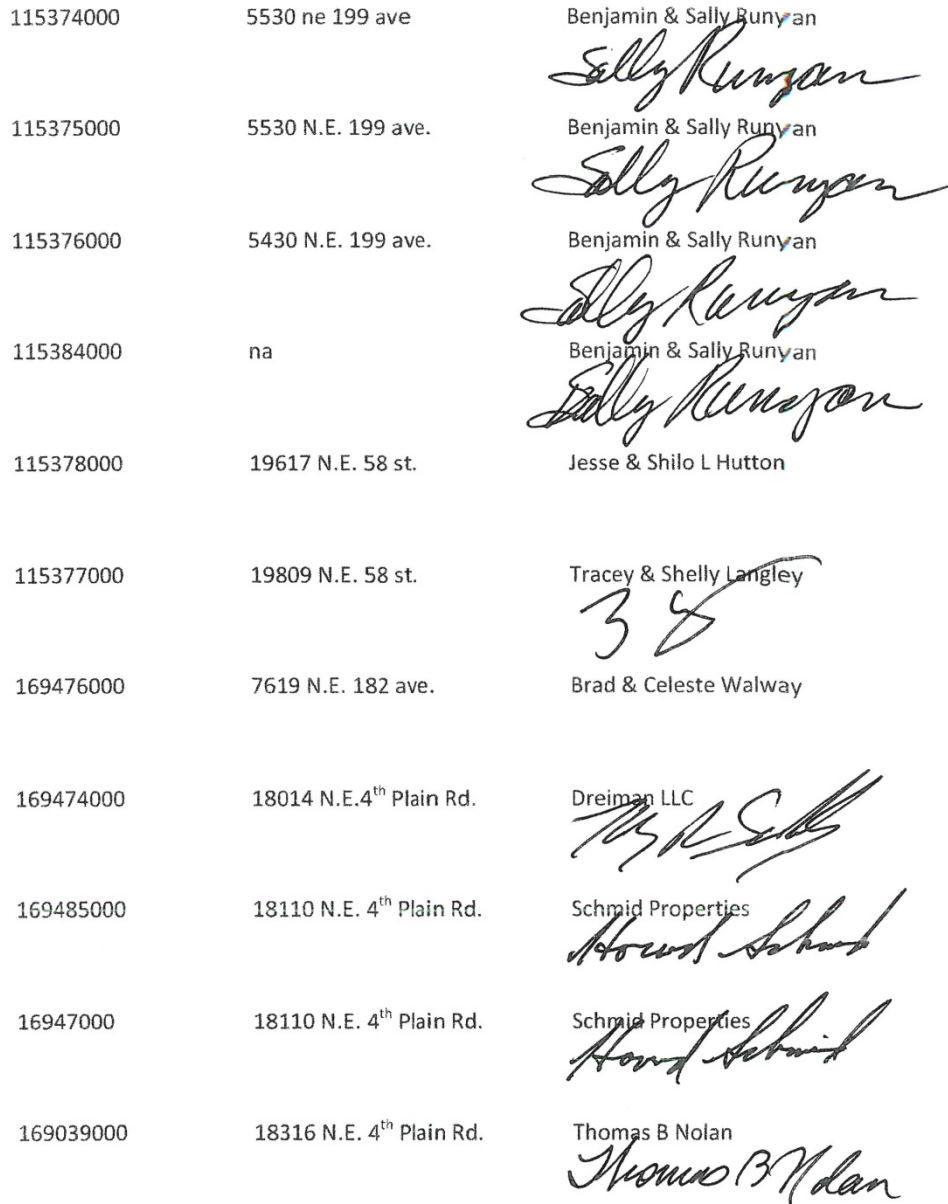 115374000 5530 ne 199 ave Benjamin & Sally Runyan
Sally Runyan
115375000 5530 N.E. 199 ave. Benjamin & Sally Runyan
Sally Runyan
115376000 5430 N.E. 199 ave. Benjamin & Sally Runyan
Sally Runyan
115384000 na Benjamin & Sally Runyan
Sally Runyan
115378000 19617 N.E. 58 st. Jesse & Shilo L Hutton
115377000 19809 N.E. 58 st. Tracey & Shelly Langley
169476000 7619 N.E. 182 ave. Brad & Celeste Walway
169474000 18014 N.E.4th Plain Rd. Dreiman LLC
169485000 18110 N.E. 4th Plain Rd. Schmid Properties
Howard Schmid
16947000 18110 N.E. 4th Plain Rd. Schmid Properties
Howard Schmid
169039000 18316 N.E. 4th Plain Rd. Thomas B Nolan
Thomas B Nolan